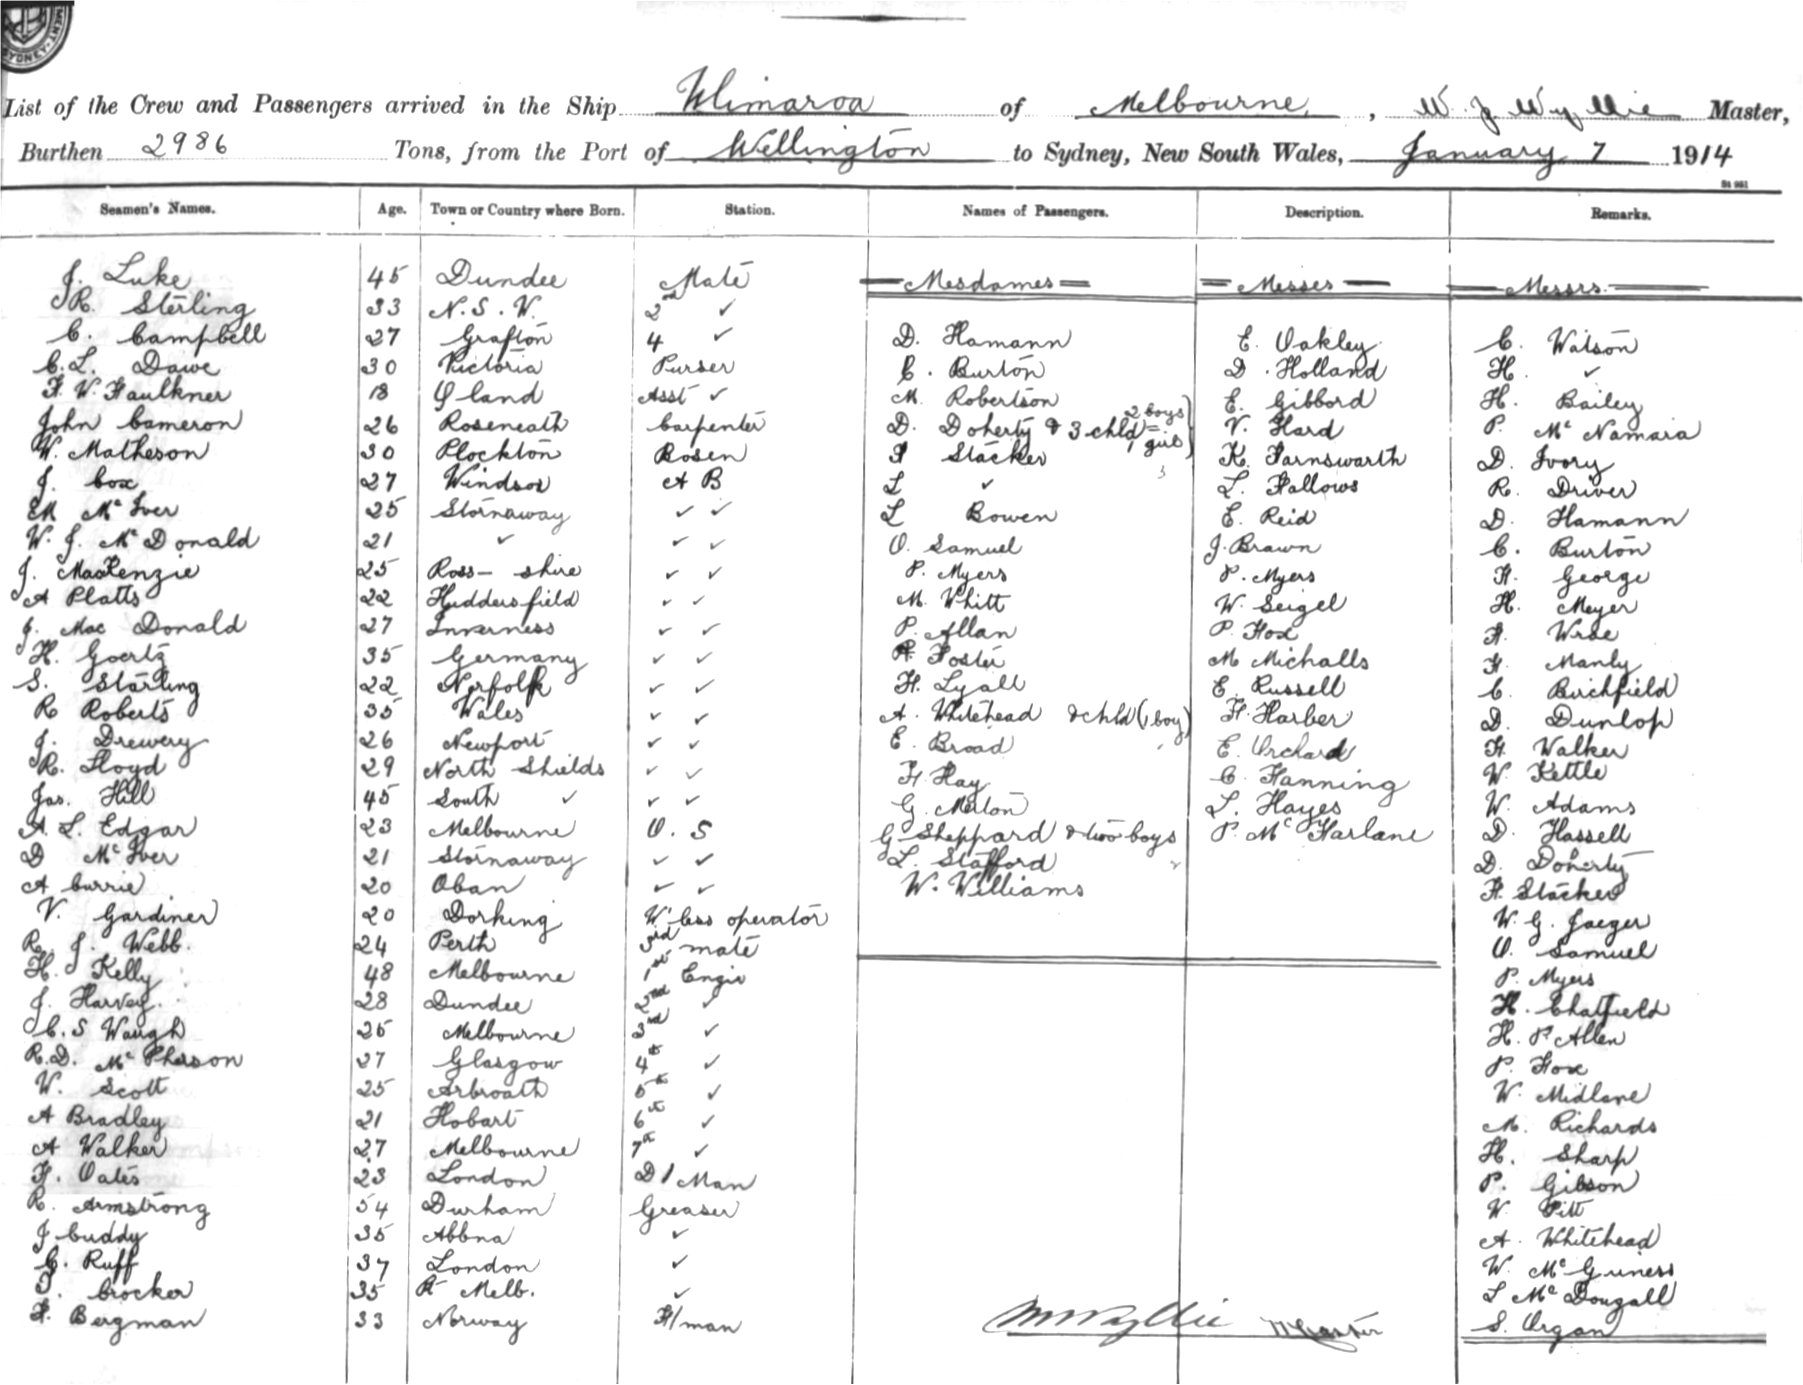 SYDNEY
List of the Crew and Passengers arrived in the Ship Ulimaroa of Melbourne, W. J Wyllie Master,
Burthen 2986 Tons, from the Port of Wellington to Sydney, New South Wales, January 7 1914
Seamen's Names. Age. Town or Country where Born. Station. Names of Passengers. Description. Remarks.
J. Luke 45 Dundee Mate Mesdames Misses Messrs.
R. Sterling 33 N.S.W. 2nd ✓
C. Campbell 27 Grafton 4 ✓ D. Hamann E. Oakley C. Watson
C. L. Dawe 30 Victoria Purser C. Burton D. Holland H. ✓
F. W. Faulkner 18 Q land Asst ✓ M. Robertson E. Gibbord H. Bailey
John Cameron 26 Roseneath Carpenter D. Doherty & 3 chld = 2 boys 1 girl V. Hard P. McNamara
W. Matheson 30 Plockton Bosen F Stacker K. Farnsworth D. Ivory
J. Cox 27 Windsor A B L ✓ L. Fallows R. Driver
M McIver 25 Stornaway ✓ ✓ L Bowen E. Reid D. Hamann
W. J. McDonald 21 ✓ ✓ ✓ O. Samuel J. Brawn C. Burton
J. MacKenzie 25 Ross-shire ✓ ✓ P. Myers P. Myers F. George
A Platts 22 Huddersfield ✓ ✓ M. Whitt W. Seigel H. Meyer
J. Mac Donald 27 Inverness ✓ ✓ P. Allan P. Fox F. Wrae
H. Goertz 35 Germany ✓ ✓ Foster M Michalls F. Manly
S. Starling 22 Norfolk ✓ ✓ H. Lyall E. Russell C. Birchfield
R Roberts 35 Wales ✓ ✓ A. Whitehead & chld (1 boy) F. Harber D. Dunlop
J. Drewery 26 Newport ✓ ✓ E. Broad E. Orchard F. Walker
R. Floyd 29 North Shields ✓ ✓ F. Hay C. Hanning W. Kettle
Jas. Hill 45 South ✓ ✓ ✓ G. Melton L. Hayes W. Adams
A. L. Edgar 23 Melbourne O. S G. Sheppard & two boys P. McFarlane D. Hassell
D McIver 21 Stornaway ✓ ✓ L. Stafford D. Doherty
A Currie 20 Oban ✓ ✓ W. Williams F. Stacker
V. Gardiner 20 Dorking W'less operator W. G. Jaeger
R. J. Webb. 24 Perth 3rd mate O. Samuel
H. Kelly 48 Melbourne 1st Engir P. Myers
J. Harvey. 28 Dundee 2nd ✓ H. Chatfield
C. S Waugh 25 Melbourne 3rd ✓ H. P Allen
R. D. McPherson 27 Glasgow 4th ✓ P. Fox
W. Scott 25 Arbroath 5th ✓ W. Midlane
A Bradley 21 Hobart 6th ✓ M. Richards
A Walker 27 Melbourne 7th ✓ H. Sharp
F. Oates 23 London D/Man P. Gibson
R. Armstrong 54 Durham Greaser W. Pitt
J Cuddy 35 Abbna ✓ A. Whitehead
C. Ruff 37 London ✓ W. McGuness
Crocker 35 Pt Melb. ✓ L McDougall
F. Bergman 33 Norway F/man Wyllie Master S. Organ